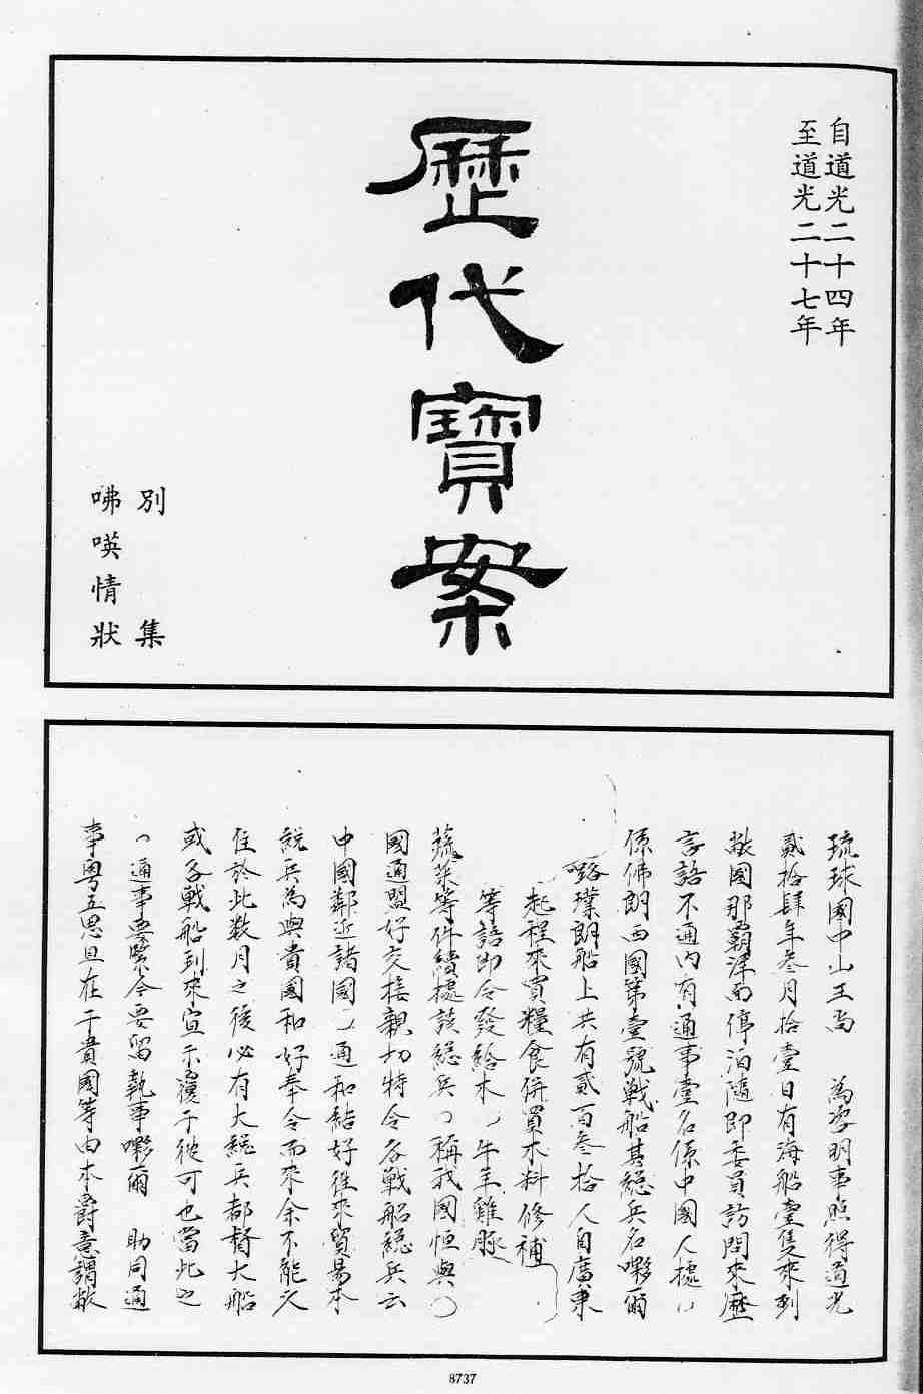 自道光二十四年
至道光二十七年
歷代寶案
別集
咈㖽情狀
琉球國中山王尚 為咨明事照得道光
貳拾肆年叁月拾壹日有海船壹隻來到
敝國那霸洋面停泊隨即委員訪問來歷
言語不通內有通事壹名係中國人據
係佛朗西國第壹號戰船其總兵名嘞爾
朗船上共有貳百叁拾人自廣東
起程來買糧食併買木料修補
等語即令發給木 牛羊雞豚
蔬菜等件續據該總兵 稱我國恒與
國通盟好交接親切特令各戰船總兵云
中國鄰近諸國 通和結好往來貿易本
總兵為與貴國和好奉令而來余不能久
住於此數月之後必有大總兵都督大船
或多戰船到來宣示 覆于彼可也當此之
通事要緊今要留執事嘞爾 助同通
事粵 思旦在于貴國等由本爵意謂敝
8737